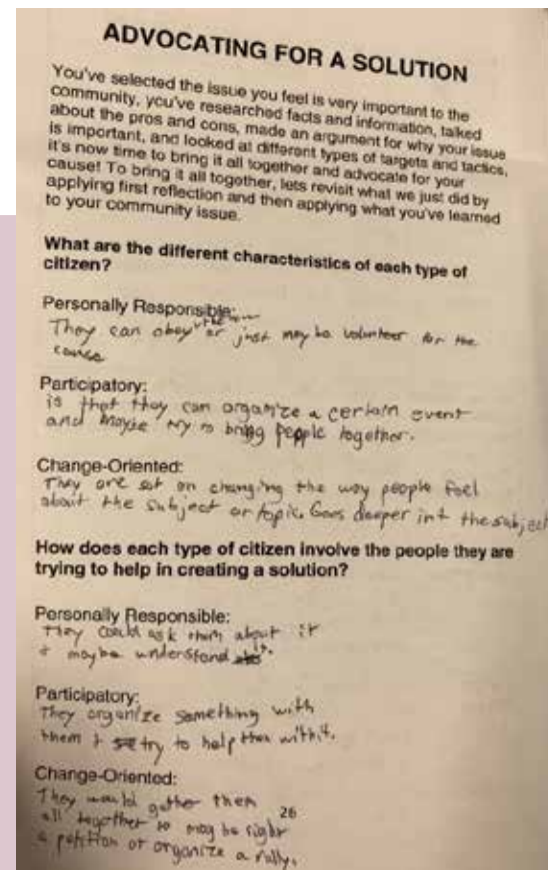 ADVOCATING FOR A SOLUTION
You've selected the issue you feel is very important to the
community, you've researched facts and information, talked
about the pros and cons, made an argument for why your issue
is important, and looked at different types of targets and tactics,
it's now time to bring it all together and advocate for your
cause! To bring it all together, lets revisit what we just did by
applying first reflection and then applying what you've learned
to your community issue.
What are the different characteristics of each type of
citizen?
Personally Responsible:
They can obey or just maybe volunteer for the
cause
Participatory:
is that they can organize a certain event
and maybe try to bring people together.
Change-Oriented:
They are set on changing the way people feel
about the subject or topic. Goes deeper int the subject
How does each type of citizen involve the people they are
trying to help in creating a solution?
Personally Responsible:
They could ask them about it
+ maybe understand
Participatory:
They organize something with
them + try to help them with it.
Change-Oriented:
They would gather them
26
all together to may be right
a petition or organize a rally.